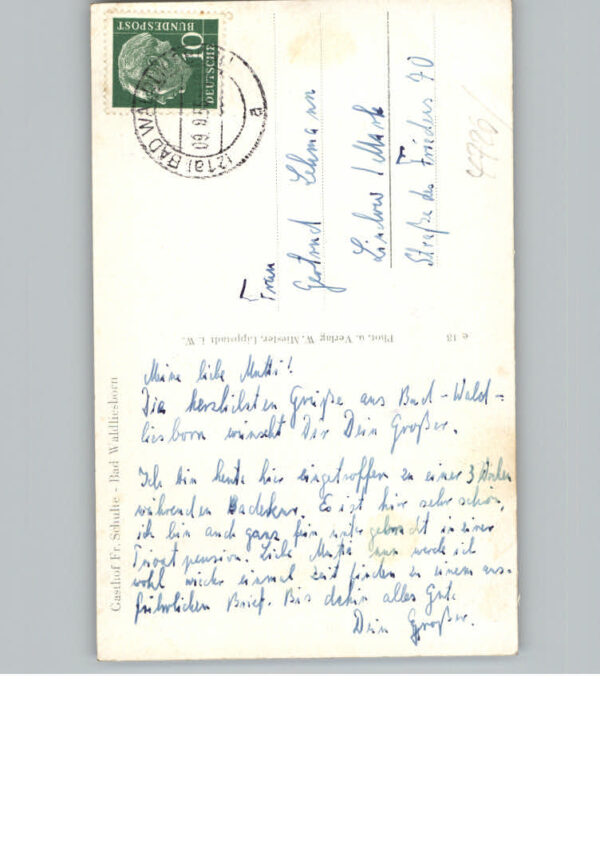 DEUTSCHE
BUNDESPOST
10
(21a) BAD WALD
09.9.5
a
Frau
Gertrud Lehmann
Lindow / Mark
Straße des Friedens 70
Phot. u. Verlag W. Miester, Lippstadt i. W.
e 13
Gasthof Fr. Schulte - Bad Waldliesborn
Meine liebe Mutti!
Die herzlichsten Grüße aus Bad-Wald=
liesborn wünscht Dir Dein Großer.
Ich bin heute hier eingetroffen zu einer 3 Wochen
währenden Badekur. Es ist hier sehr schön,
ich bin auch ganz fein untergebracht in einer
Privatpension. Liebe Mutti nun werde ich
wohl wieder einmal Zeit finden zu einem aus=
führlichen Brief. Bis dahin alles Gute
Dein Großer.